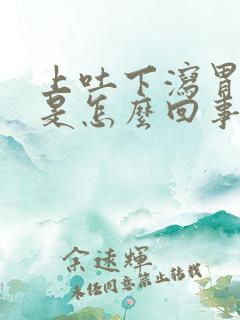 上吐下瀉胃
是怎麼回事
余速輝
未经同意禁止转载